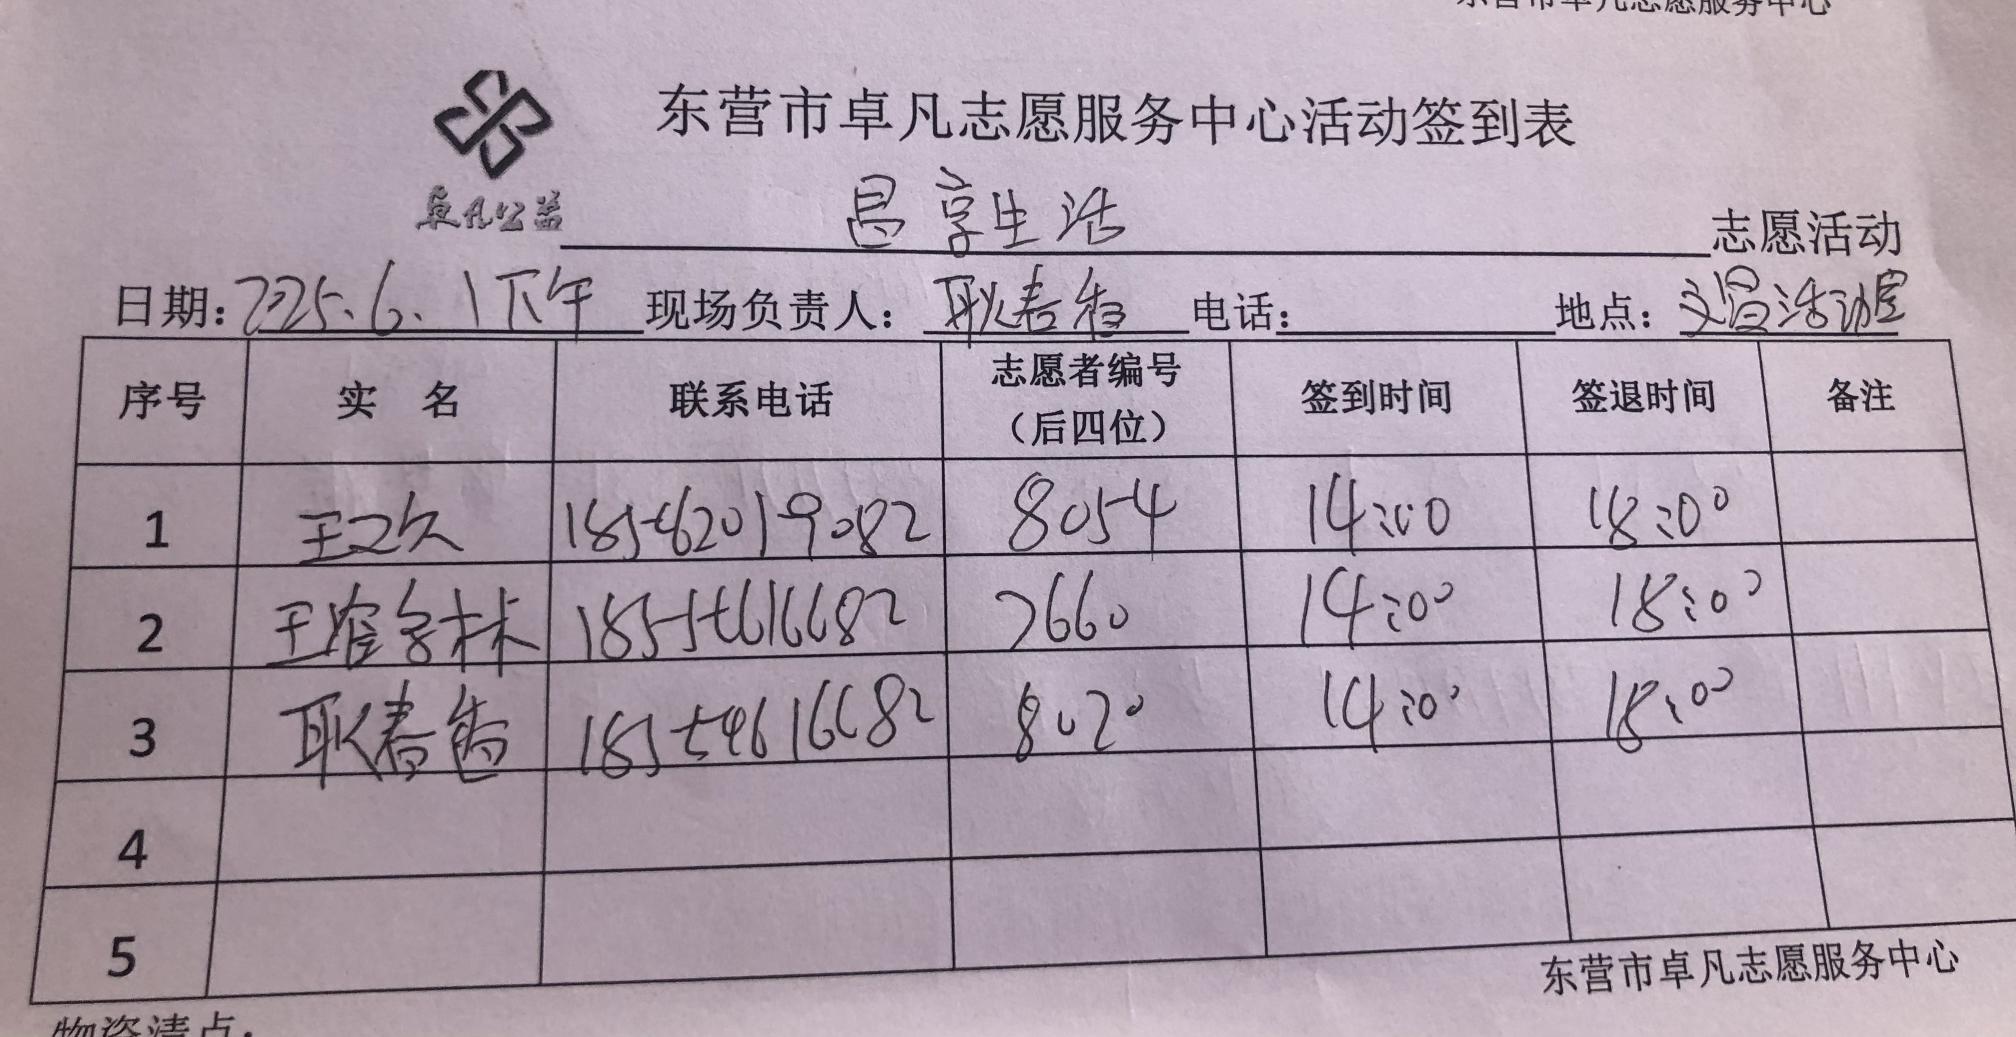 东营市卓凡志愿服务中心
东营市卓凡志愿服务中心活动签到表
卓凡公益
昌享生活 志愿活动
日期: 2025.6.1下午 现场负责人: 耿春香 电话: 地点: 文昌活动室
序号 实 名 联系电话 志愿者编号（后四位） 签到时间 签退时间 备注
1 王之久 18562019082 8054 14:00 18:00
2 王 林 18554616682 7660 14:00 18:00
3 耿春香 18554616682 8020 14:00 18:00
4
5
东营市卓凡志愿服务中心
物资清点: